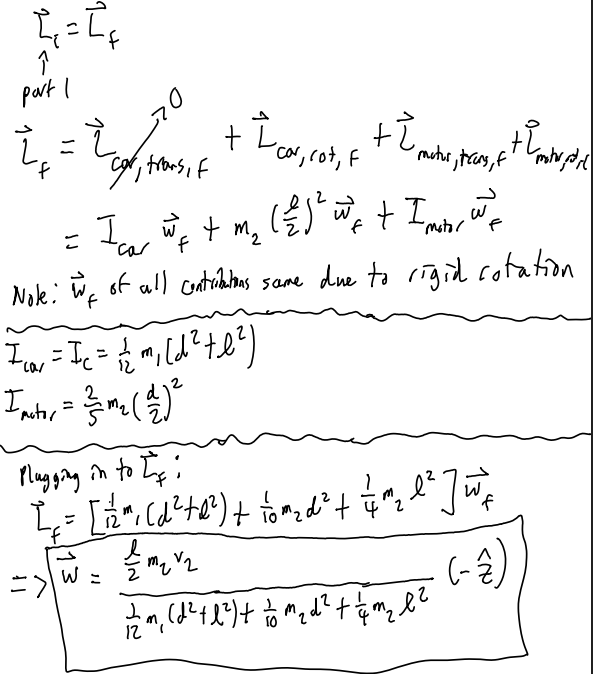 L⃗ᵢ = L⃗_f
↑
part 1
L⃗_f = L⃗_car,trans,f → 0 + L⃗_car,rot,f + L⃗_motor,trans,f + L⃗_motor,rot,f
= I_car w⃗_f + m₂ (ℓ/2)² w⃗_f + I_motor w⃗_f
Note: w⃗_f of all contributions same due to rigid rotation
I_car = I_c = 1/12 m₁ (d² + ℓ²)
I_motor = 2/5 m₂ (d/2)²
Plugging in to L⃗_f :
L⃗_f = [1/12 m₁ (d² + ℓ²) + 1/10 m₂ d² + 1/4 m₂ ℓ²] w⃗_f
=> w⃗ = (ℓ/2 m₂ v₂) / (1/12 m₁ (d² + ℓ²) + 1/10 m₂ d² + 1/4 m₂ ℓ²) (-ẑ)